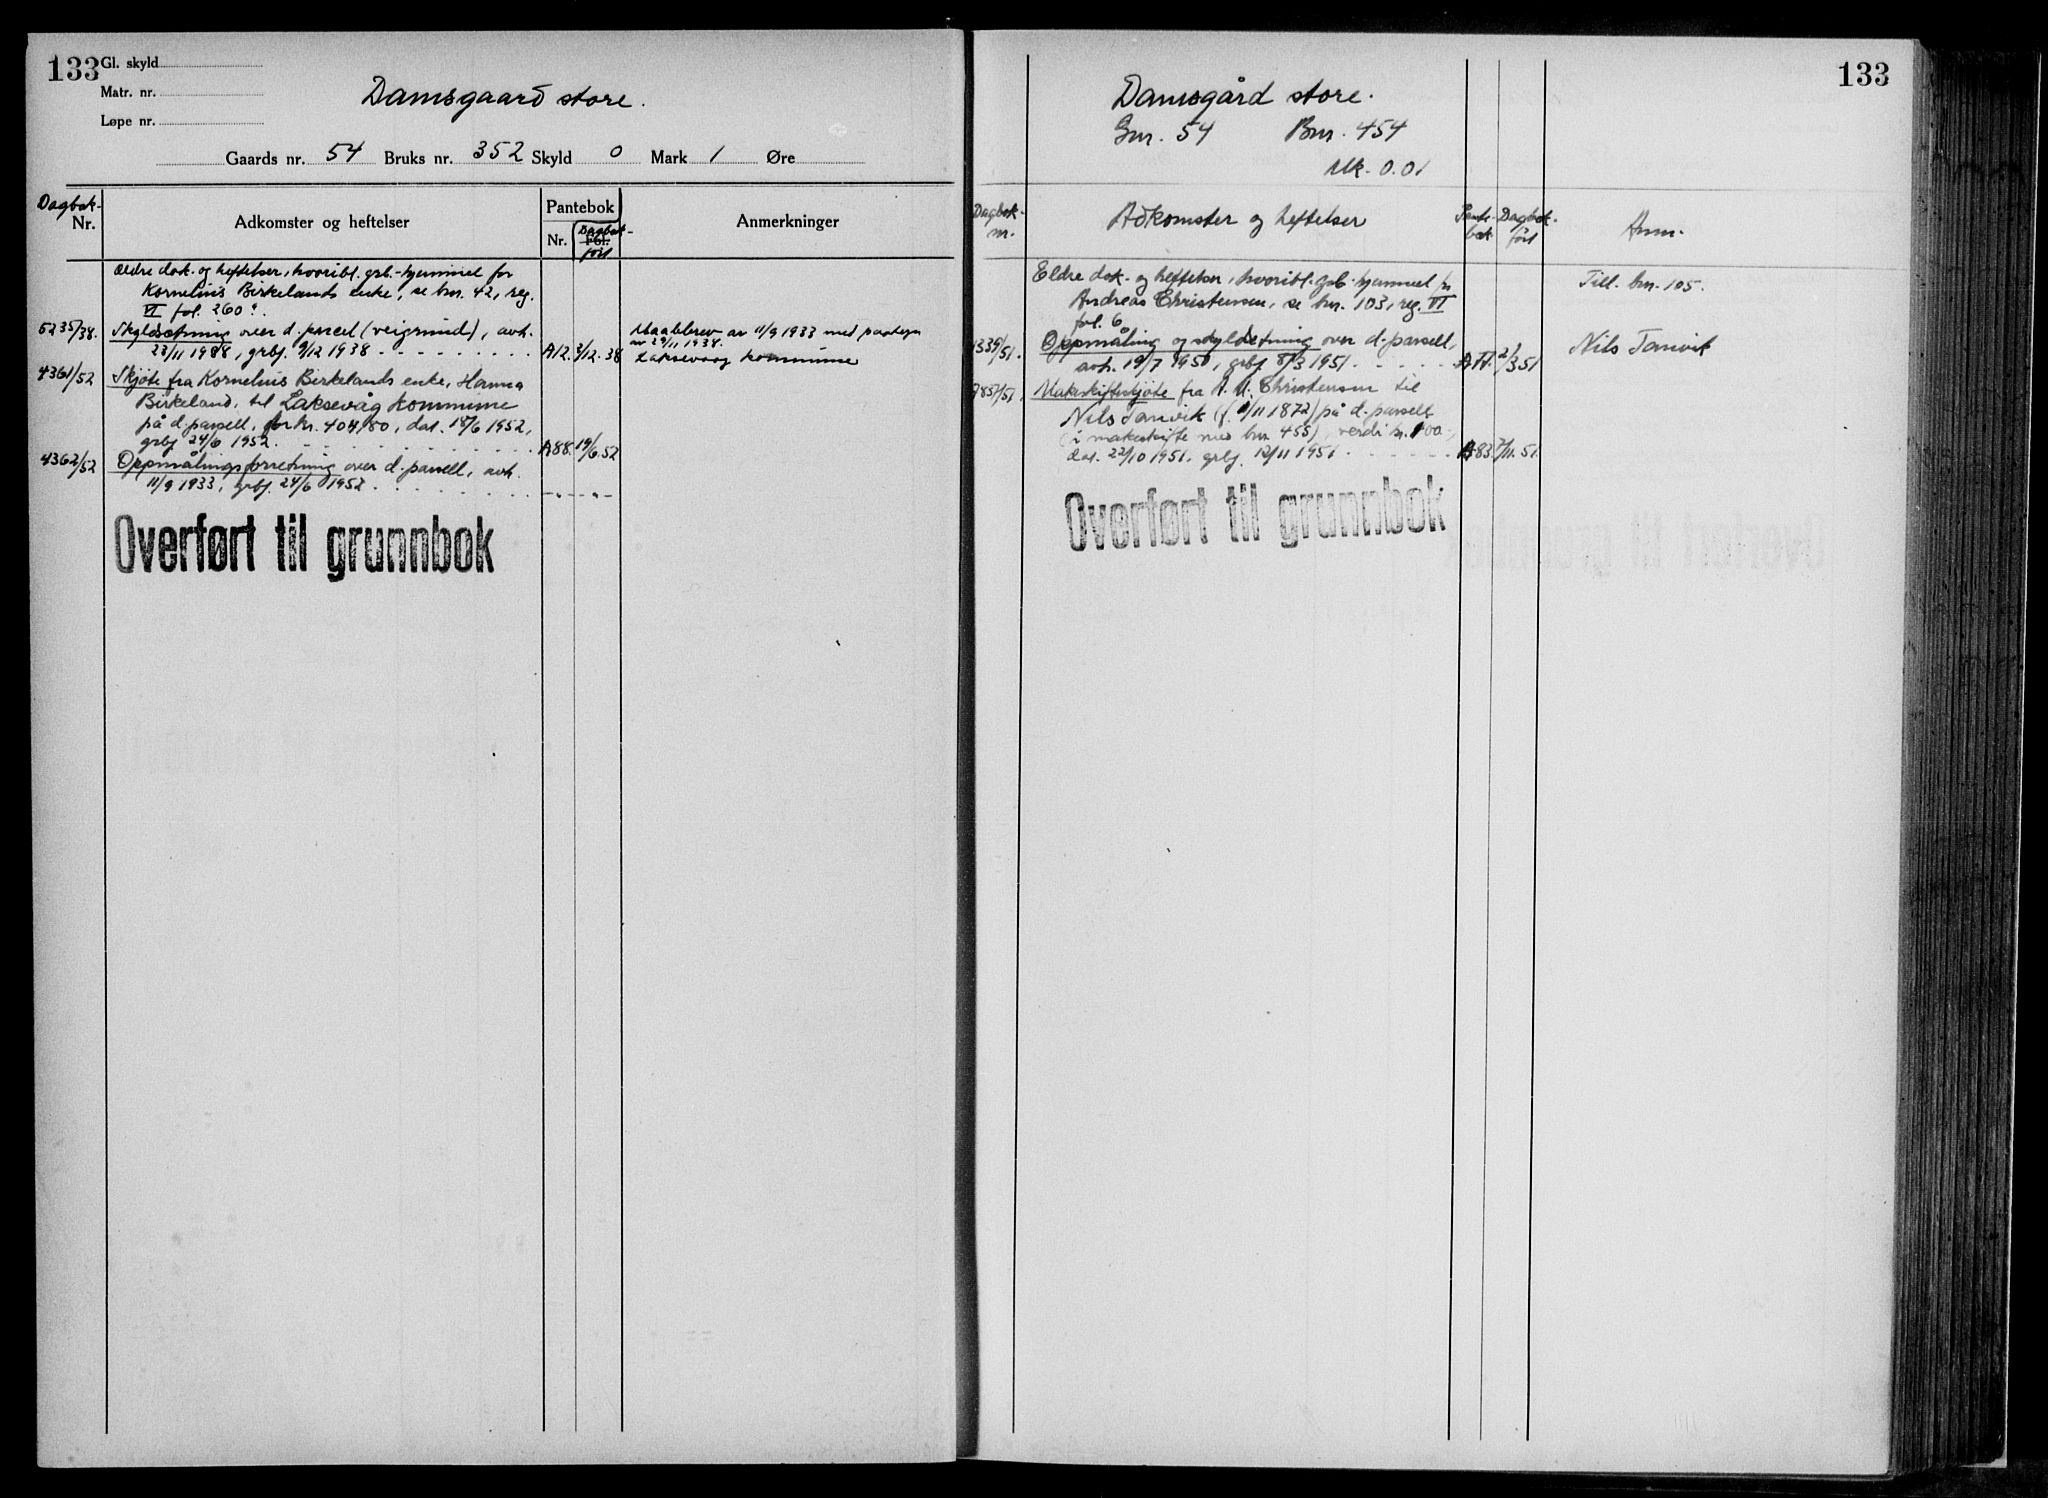 133
Gl. skyld
Matr. nr.
Løpe nr.
Damsgaard store.
Gaards nr. 54 Bruks nr. 352 Skyld 0 Mark 1 Øre
Dagbok-
Nr.
Adkomster og heftelser
Pantebok
Nr.
Fol.
Dagbok-
ført
Anmerkninger
Ældre dok. og heftelser, hvoribl. grb.-hjemmel for
Kornelius Birkelands enke, se bnr. 42, reg.
VI fol. 260.
5235/38. Skyldsetning over d. parcel (veigrund), avh.
23/11 1938, grbj. 9/12 1938 A12. 2/12.38
Maalebrev av 11/9 1933 med paategn
av 29/11 1938.
Laksevaag kommune
4361/52 Skjöte fra Kornelius Birkelands enke, Hanna
Birkeland, til Laksevåg kommune
på d. parsell, for kr. 404,80, dat. 18/6 1952,
grbj 24/6 1952. A88. 19/6.52
4362/52 Oppmålingsforretning over d. parsell, avh.
11/9 1933, grbj. 24/6 1952. -"- -"-
Overført til grunnbok
133
Damsgård store.
Gnr. 54 Bnr. 454
Mk. 0.01
Dagbok-
nr.
Adkomster og heftelser
Pante-
bok
Dagbok-
ført
Anm.
Eldre dok- og heftelser, hvoribl. grb-hjemmel for
Andreas Christensen, se bnr. 103, reg. VI
fol. 6
Till. bnr. 105.
1339/51. Oppmåling og skyldsetning over d. parsell,
avh. 19/7 1950, grbj 8/3 1951. 2/3 51
Nils Tanvik
Makeskifteskjöte fra A. M. Christensen til
Nils Tanvik (f. /11 1872) på d. parsell
(i makeskifte med bnr. 455), verdi kr. 100.-,
dat. 22/10 1951. grbj. 12/11 1951 A83. 7/11.51.
Overført til grunnbok